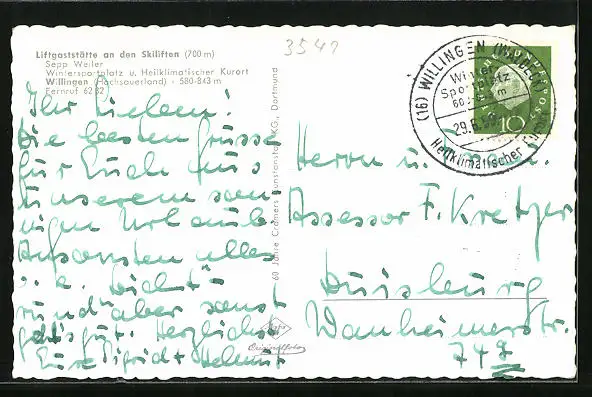 Liftgaststätte an den Skiliften (700 m)
Sepp Weiler
Wintersportplatz u. Heilklimatischer Kurort
Willingen (Hochsauerland) · 580-843 m
Fernruf 6282
3541
Ihr Lieben!
Die besten Grüsse
für Euch aus
unserem son-
nigen Urlaub
Ansonsten alles
rund aber sonst
geht's gut. Herzlichst
Eure Sigrid + Helmut
60 Jahre Cramers Kunstanstalt KG., Dortmund
Originalfoto
(16) WILLINGEN (WALDECK)
Winter
Sportplatz
29.
Heilklimatischer Kurort
10
Herrn u.
Assessor F. Kretzer
Duisburg
Wanheimerstr.
749